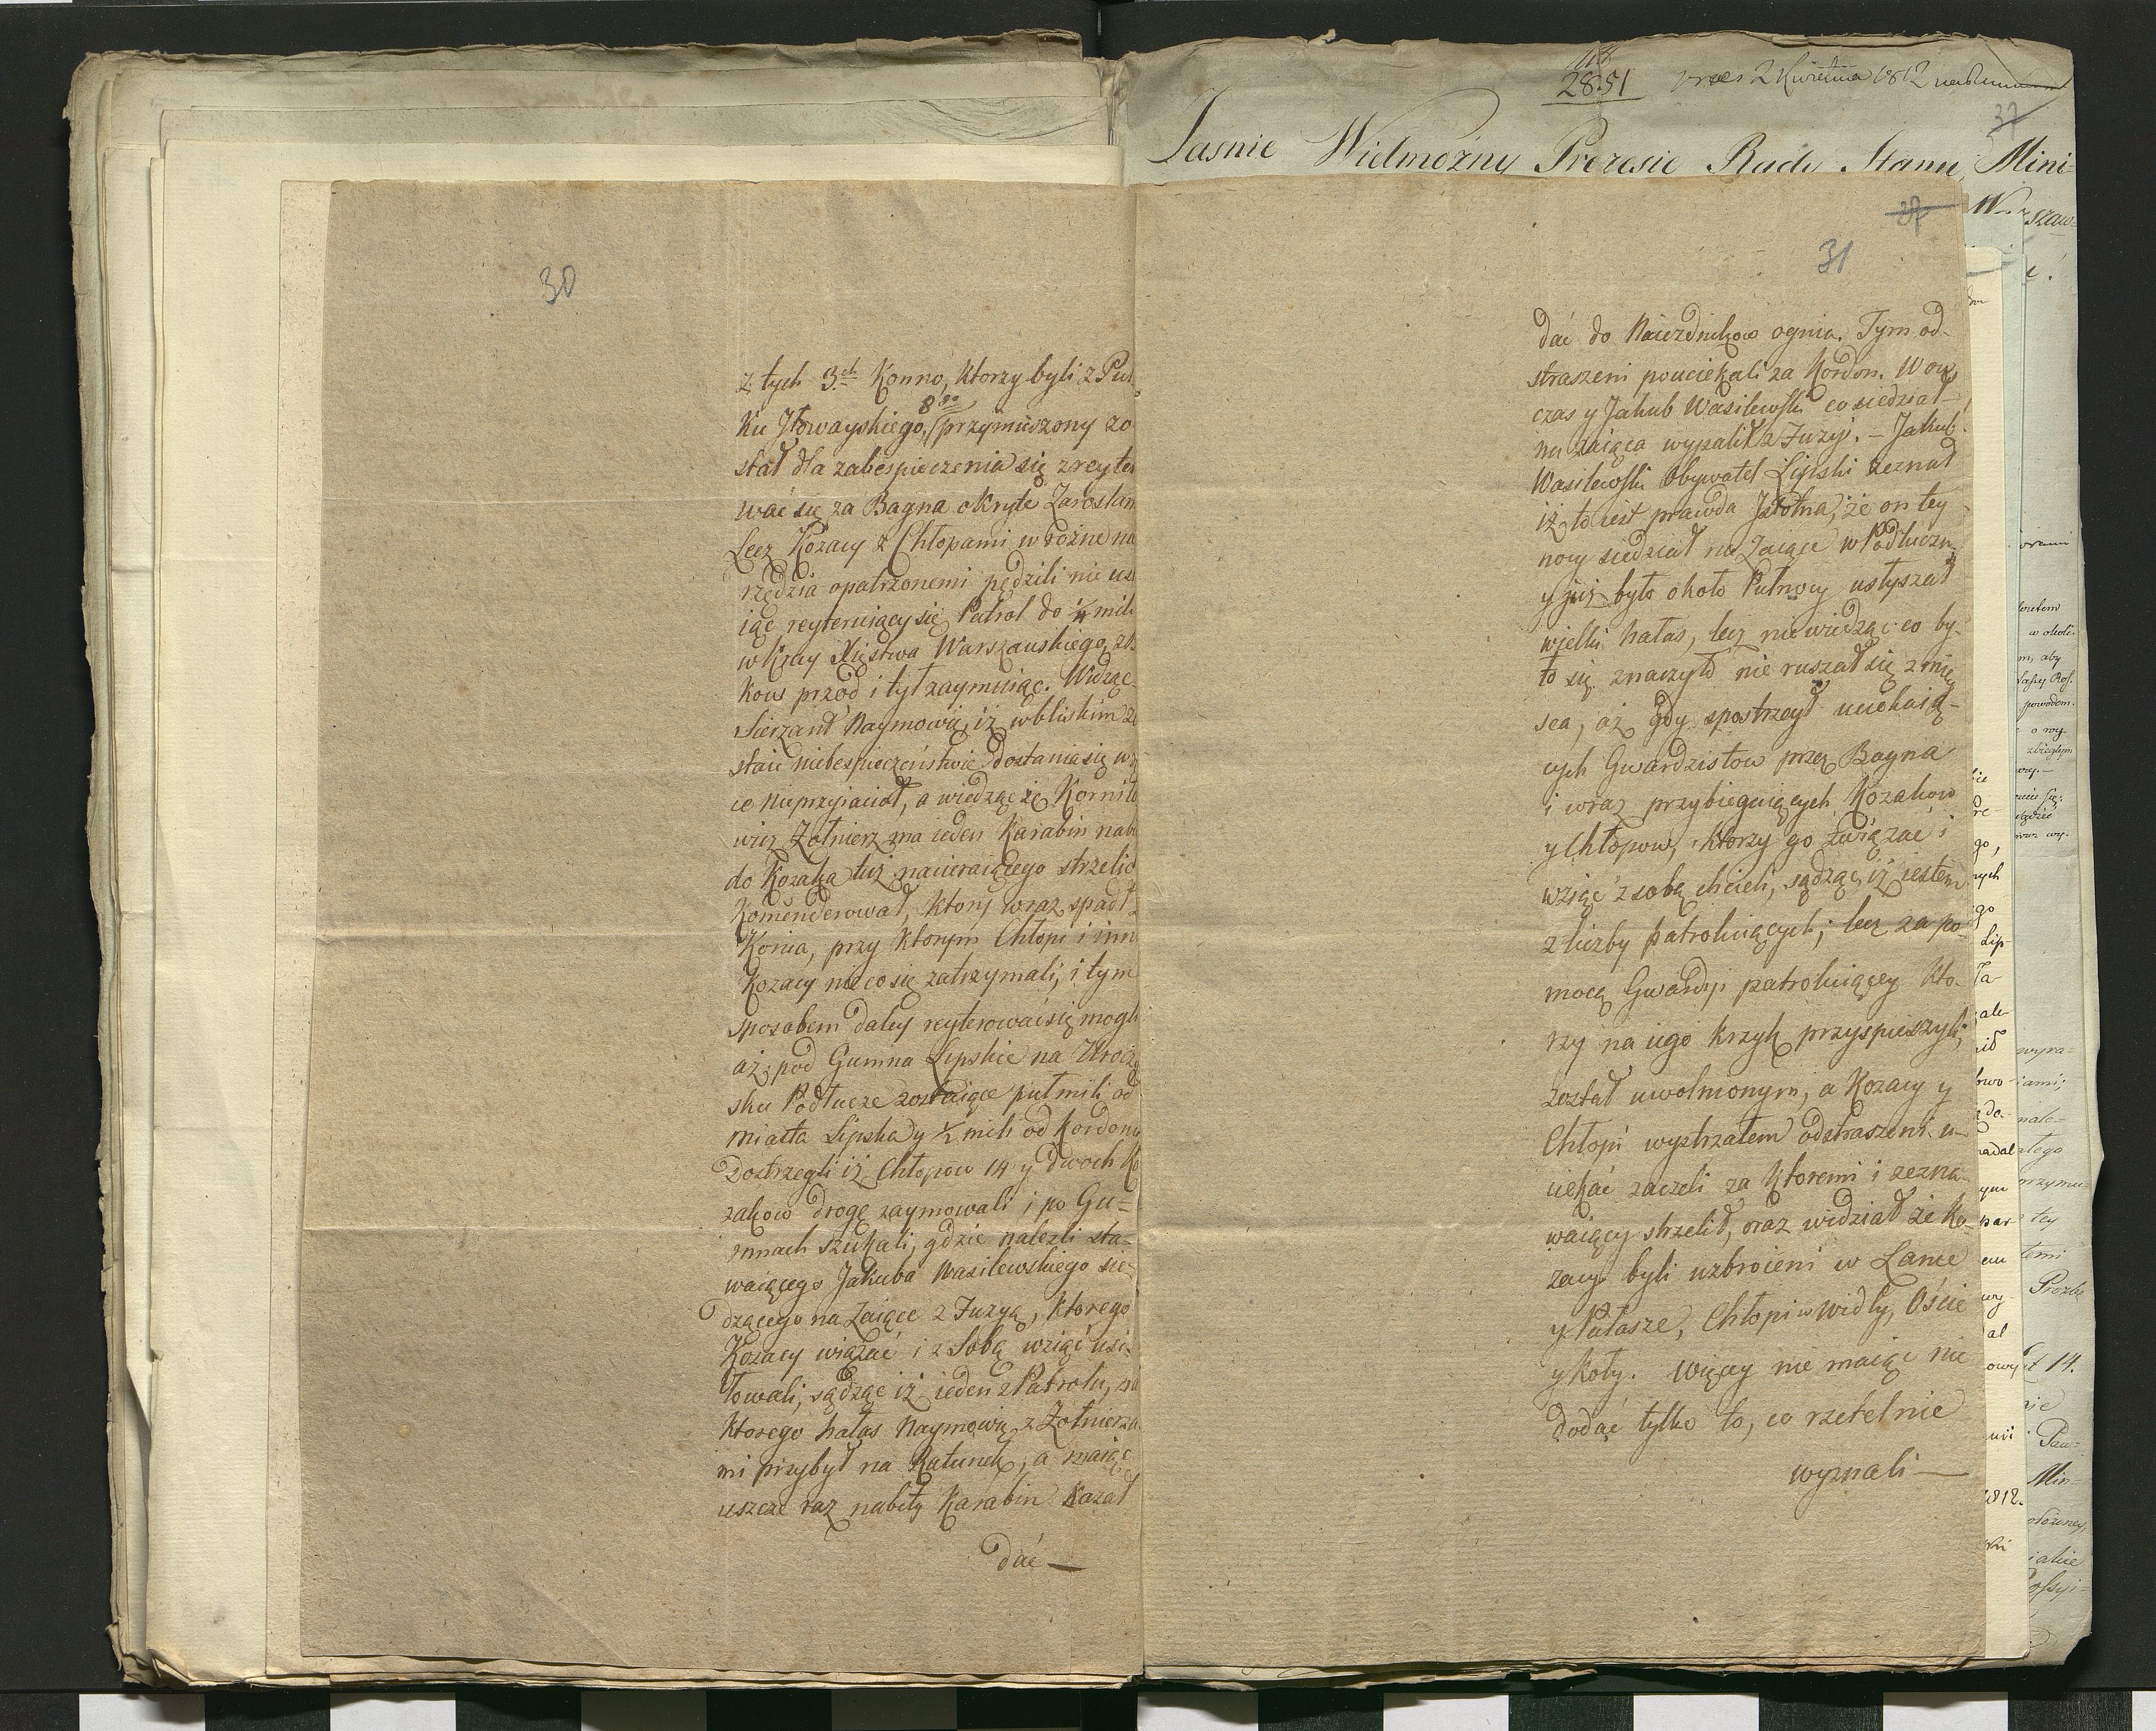 30
z tych 3ch Konno, ktorzy byli z Puł
ku Jłowayskiego 8go przymuszony zo
stał dla zabespieczenia się zreyte
wać się za Bagna okryte Zarostam
Lecz Kozacy z Chłopami w rożne na
rzędzia opatrzonemi pędzili nie us
iąc reyteruiący się Patrol do ¼ mili
w Kray Xięstwa Warszawskiego, z b
kow przod i tył zaymuiąc. Widząc
Sierzant Naymowicz iż w bliskim zo
staie niebespieczeństwie dostania się w r
ce nieprzyiacioł, a wiedząc że Korniło
wicz Żołnierz ma ieden Karabin nabi
do Kozaka tuż nacieraiącego strzelić
Komenderował, ktory wraz spadł z
Konia, przy ktorym Chłopi i inn
Kozacy nieco się zatrzymali, i tym
sposobem daley reyterować się mogli
aż pod Gumna Lipskie na Uroczy
sku Podłucze zostaiące puł mili od
miasta Lipska y ½ mili od Kordonu
Dostrzegli iż Chłopow 14 y dwoch Ko
zakow drogę zaymowali i po Gu=
mnach szukali, gdzie nalezli sta-
waiącego Jakuba Wasilewskiego sie-
dzącego na Zaiące z Fuzyą, ktorego
Kozacy wiązać i z Sobą wziąć usi-
łowali, sądząc iż ieden z Patrolu, na
ktorego hałas Naymowicz z Żołnierza
mi przybył na Ratunek, a maiąc
ieszcze raz nabity Karabin Kazał
dać —
118
2851 praes 2 Kwietnia 1812
37
Jasnie Wielmożny Prezesie Rady Stanu, Mini-
27
31
dać do Naiezdnikow ognia. Tym od-
straszeni pouciekali za Kordon. W ow
czas y Jakub Wasilewski co siedział
na zaiąca wypalił z Fuzyi. — Jakub
Wasilewski Obywatel Lipski zeznał
iż to iest prawda Jstotna, że on tey
nocy siedział na Zaiące w Podłuczu
y już było około Pułnocy usłyszał
wielki hałas, lecz nie widząc co by
to się znaczyło nie ruszał się z miey
sca, aż gdy spostrzegł uciekaią-
cych Gwardzistow przez Bagna
i wraz przybiegaiących Kozakow
y Chłopow, ktorzy go związać i
wziąć z sobą chcieli, sądząc iż iestem
z liczby patroluiących; lecz za po-
mocą Gwardyi patroluiącey kto-
rzy na iego krzyk przyspieszyli,
został uwolnionym, a Kozacy y
Chłopi wystrzałem odstraszeni u-
ciekać zaczeli za ktoremi i zezna-
waiący strzelił, oraz widział że Ko-
zacy byli uzbroieni w Lance
y Pałasze, Chłopi w widły, Oście
y Koły. Więcy nie maiąc nic
dodać tylko to, co rzetelnie
wyznali —